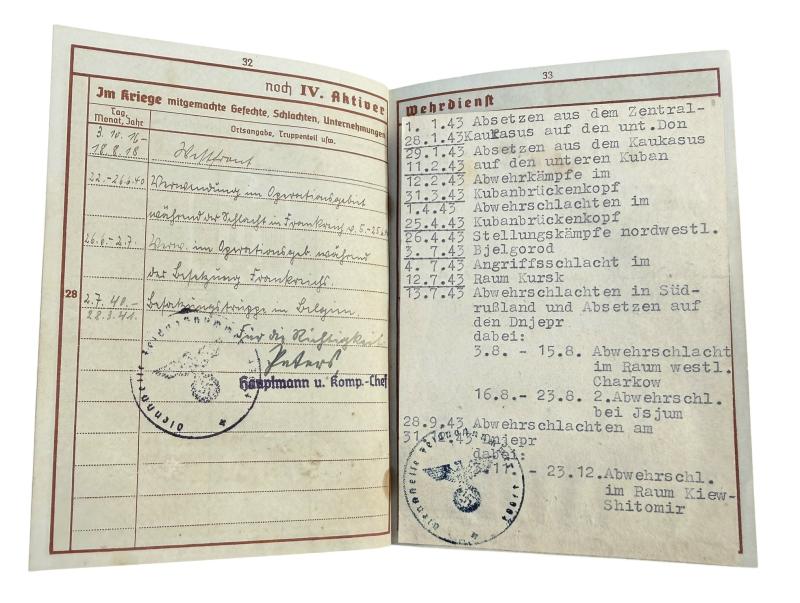 32
noch IV. Aktiver
Im Kriege mitgemachte Gefechte, Schlachten, Unternehmungen
Tag, Monat, Jahr
Ortsangabe, Truppenteil usw.
3. 10. 16-
18.8.18
Westfront
22.-26.6.40 Verwendung im Operationsgebiet
während der Schlacht in Frankreich v. 5.-25.6.
26.6.-2.7. Verw. im Operationsgeb. während
der Besetzung Frankreichs
28
2.7.40.- Besatzungstruppe in Belgien
28.3.41.
Für die Richtigkeit:
Peters
Hauptmann u. Komp.-Chef
Dienststelle Feldpostnummer
33
Wehrdienst
1. 1.43 Absetzen aus dem Zentral-
28.1.43 Kaukasus auf den unt.Don
29.1.43 Absetzen aus dem Kaukasus
11.2.43 auf den unteren Kuban
12.2.43 Abwehrkämpfe im
31.3.43 Kubanbrückenkopf
1.4.43 Abwehrschlachten im
25.4.43 Kubanbrückenkopf
26.4.43 Stellungskämpfe nordwestl.
3. 7.43 Bjelgorod
4. 7.43 Angriffsschlacht im
12.7.43 Raum Kursk
13.7.43 Abwehrschlachten in Süd-
rußland und Absetzen auf
den Dnjepr
dabei:
3.8. - 15.8. Abwehrschlacht
im Raum westl.
Charkow
16.8.- 23.8. 2.Abwehrschl.
bei Jsjum
28.9.43 Abwehrschlachten am
31.12.43 Dnjepr
dabei:
- 23.12.Abwehrschl.
im Raum Kiew-
Shitomir
Dienststelle Feldpostnummer